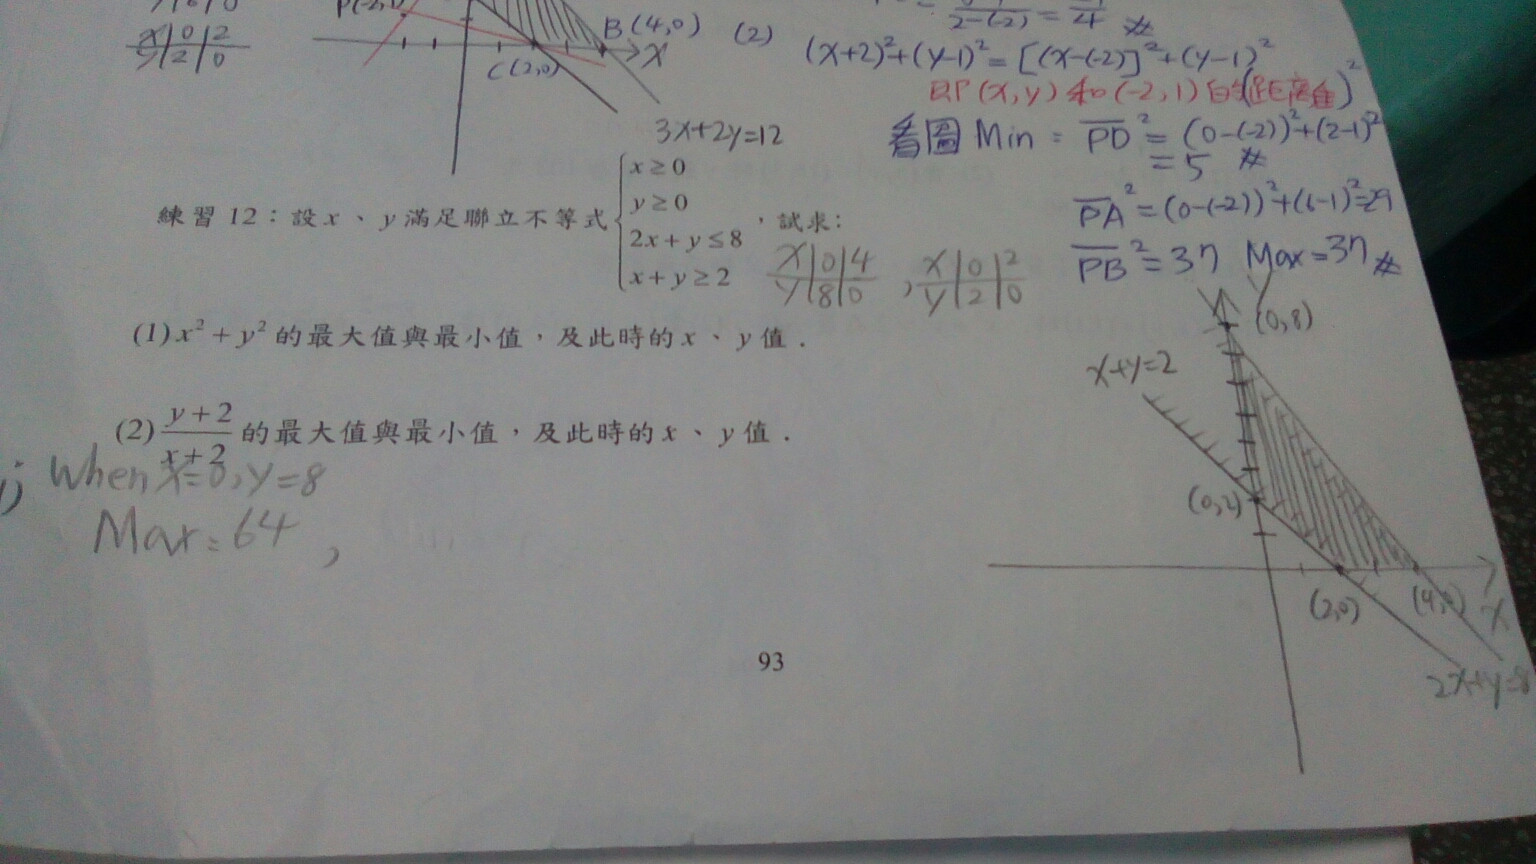 B(4,0)
X 0 2
Y 2 0
C(2,0)
X
3x+2y=12
(2)
(x+2)²+(y-1)²=[(x-(-2)]²+(y-1)²
即P(x,y)和(-2,1)的(距離)²
看圖 Min = PD² = (0-(-2))²+(2-1)²
= 5 #
PA²=(0-(-2))²+(6-1)²=29
PB²=37 Max=37 #
練習 12:設 x、y 滿足聯立不等式
x ≥ 0
y ≥ 0
2x + y ≤ 8
x + y ≥ 2
,試求:
X 0 4
Y 8 0
,
X 0 2
Y 2 0
(1) x² + y² 的最大值與最小值,及此時的 x、y 值.
(2) y + 2 / x + 2 的最大值與最小值,及此時的 x、y 值.
When X=0, Y=8
Max = 64 ,
Y
(0,8)
x+y=2
(0,2)
(2,0)
(4,0)
X
2x+y=8
93